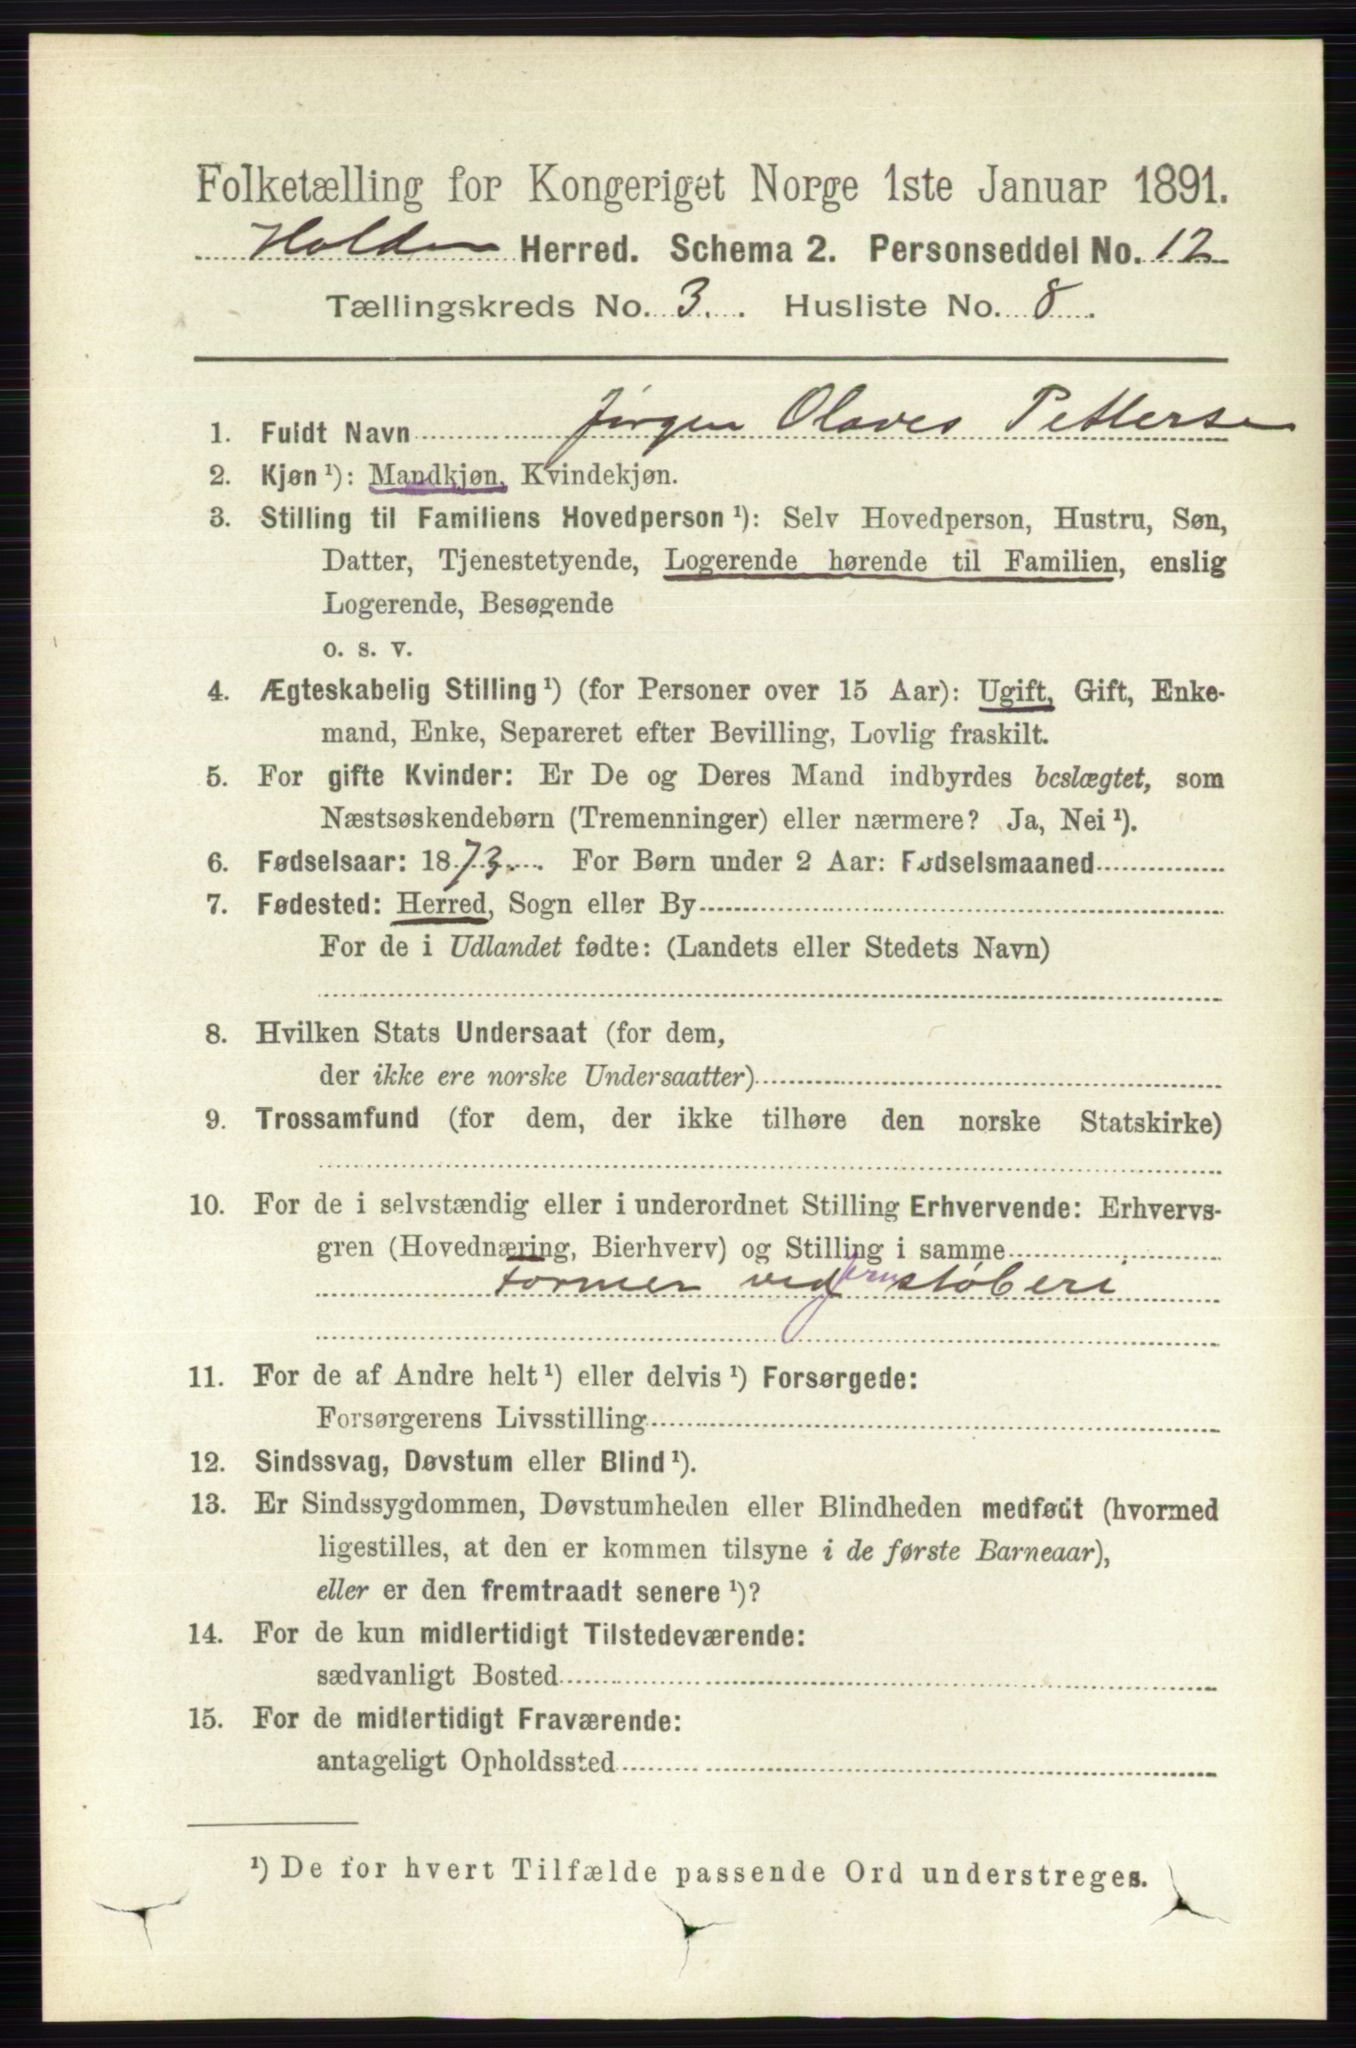 Folketælling for Kongeriget Norge 1ste Januar 1891.
Holden Herred. Schema 2. Personseddel No. 12
Tællingskreds No. 3. Husliste No. 8.
1. Fuldt Navn Jørgen Olaves Pettersen
2. Kjøn¹): Mandkjøn, Kvindekjøn.
3. Stilling til Familiens Hovedperson¹): Selv Hovedperson, Hustru, Søn,
Datter, Tjenestetyende, Logerende hørende til Familien, enslig
Logerende, Besøgende
o. s. v.
4. Ægteskabelig Stilling¹) (for Personer over 15 Aar): Ugift, Gift, Enke-
mand, Enke, Separeret efter Bevilling, Lovlig fraskilt.
5. For gifte Kvinder: Er De og Deres Mand indbyrdes beslægtet, som
Næstsøskendebørn (Tremenninger) eller nærmere? Ja, Nei¹).
6. Fødselsaar: 1873. For Børn under 2 Aar: Fødselsmaaned
7. Fødested: Herred, Sogn eller By
For de i Udlandet fødte: (Landets eller Stedets Navn)
8. Hvilken Stats Undersaat (for dem,
der ikke ere norske Undersaatter)
9. Trossamfund (for dem, der ikke tilhøre den norske Statskirke)
10. For de i selvstændig eller i underordnet Stilling Erhvervende: Erhvervs-
gren (Hovednæring, Bierhverv) og Stilling i samme
Former ved Jernstøberi
11. For de af Andre helt¹) eller delvis¹) Forsørgede:
Forsørgerens Livsstilling
12. Sindssvag, Døvstum eller Blind¹).
13. Er Sindssygdommen, Døvstumheden eller Blindheden medfødt (hvormed
ligestilles, at den er kommen tilsyne i de første Barneaar),
eller er den fremtraadt senere¹)?
14. For de kun midlertidigt Tilstedeværende:
sædvanligt Bosted
15. For de midlertidigt Fraværende:
antageligt Opholdssted
¹) De for hvert Tilfælde passende Ord understreges.